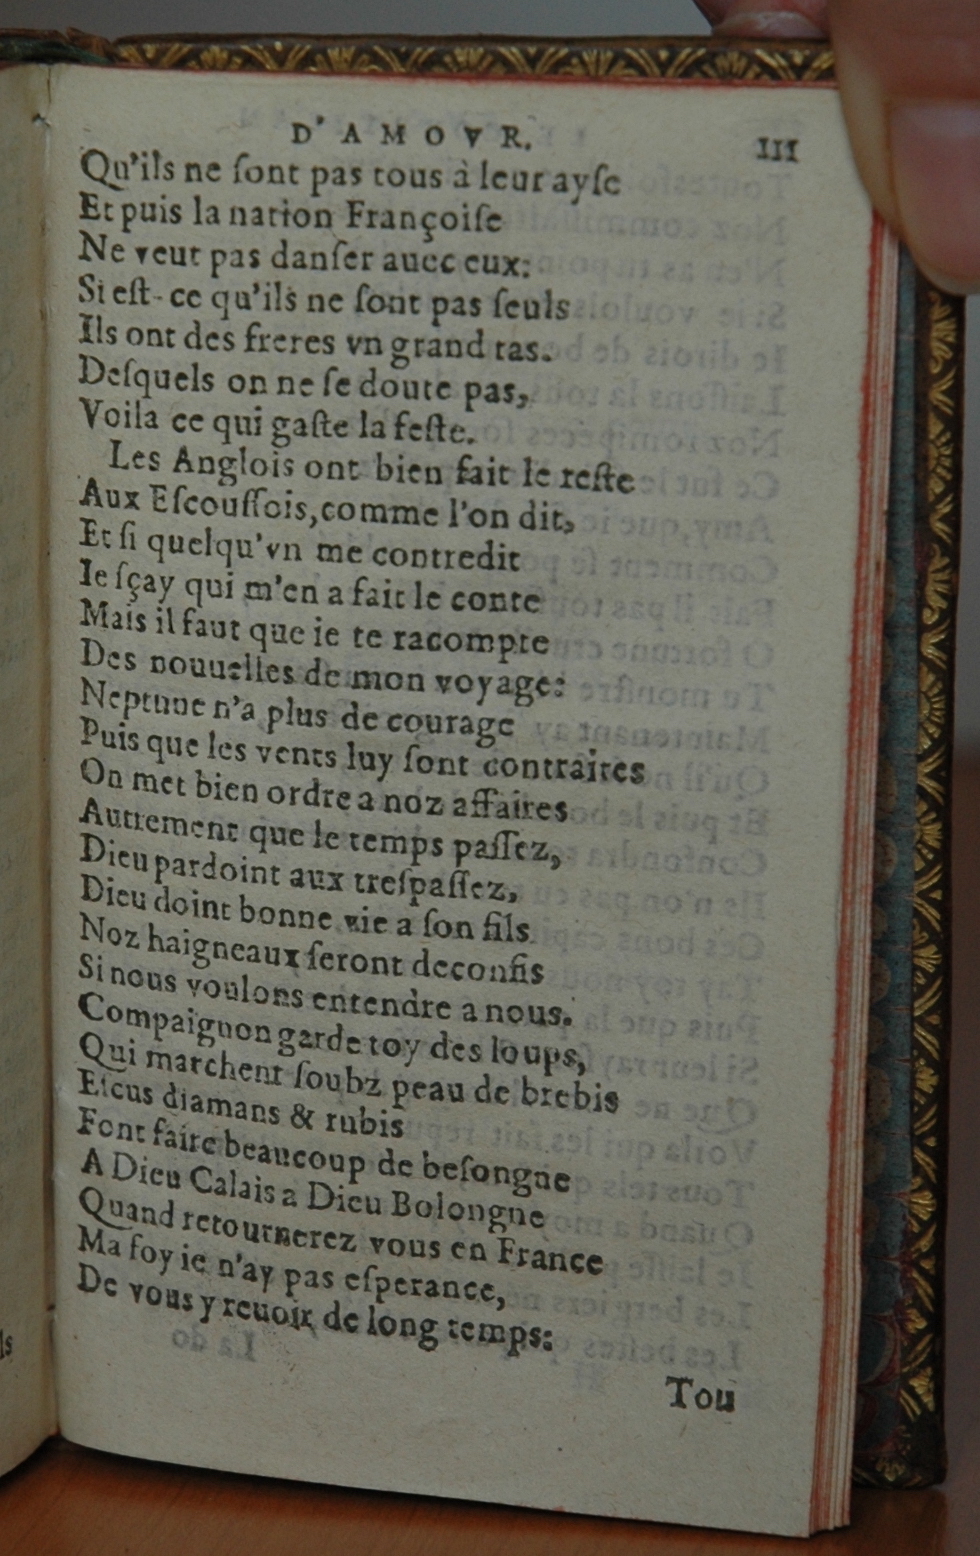 D'AMOVR. III
Qu'ils ne ſont pas tous à leur ayſe
Et puis la nation Françoiſe
Ne veut pas danſer auec eux:
Si eſt-ce qu'ils ne ſont pas ſeuls
Ils ont des freres vn grand tas.
Deſquels on ne ſe doute pas,
Voila ce qui gaſte la feſte.
Les Anglois ont bien fait le reſte
Aux Eſcouſſois, comme l'on dit,
Et ſi quelqu'vn me contredit
Ie ſçay qui m'en a fait le conte
Mais il faut que ie te racompte
Des nouuelles de mon voyage:
Neptune n'a plus de courage
Puis que les vents luy ſont contraires
On met bien ordre a noz affaires
Autrement que le temps paſſez,
Dieu pardoint aux treſpaſſez,
Dieu doint bonne vie a ſon fils
Noz haigneaux ſeront deconfis
Si nous voulons entendre a nous.
Compaignon garde toy des loups,
Qui marchent ſoubz peau de brebis
Eſcus diamans & rubis
Font faire beaucoup de beſongne
A Dieu Calais a Dieu Bolongne
Quand retournerez vous en France
Ma foy ie n'ay pas eſperance,
De vous y reuoir de long temps:
Tou